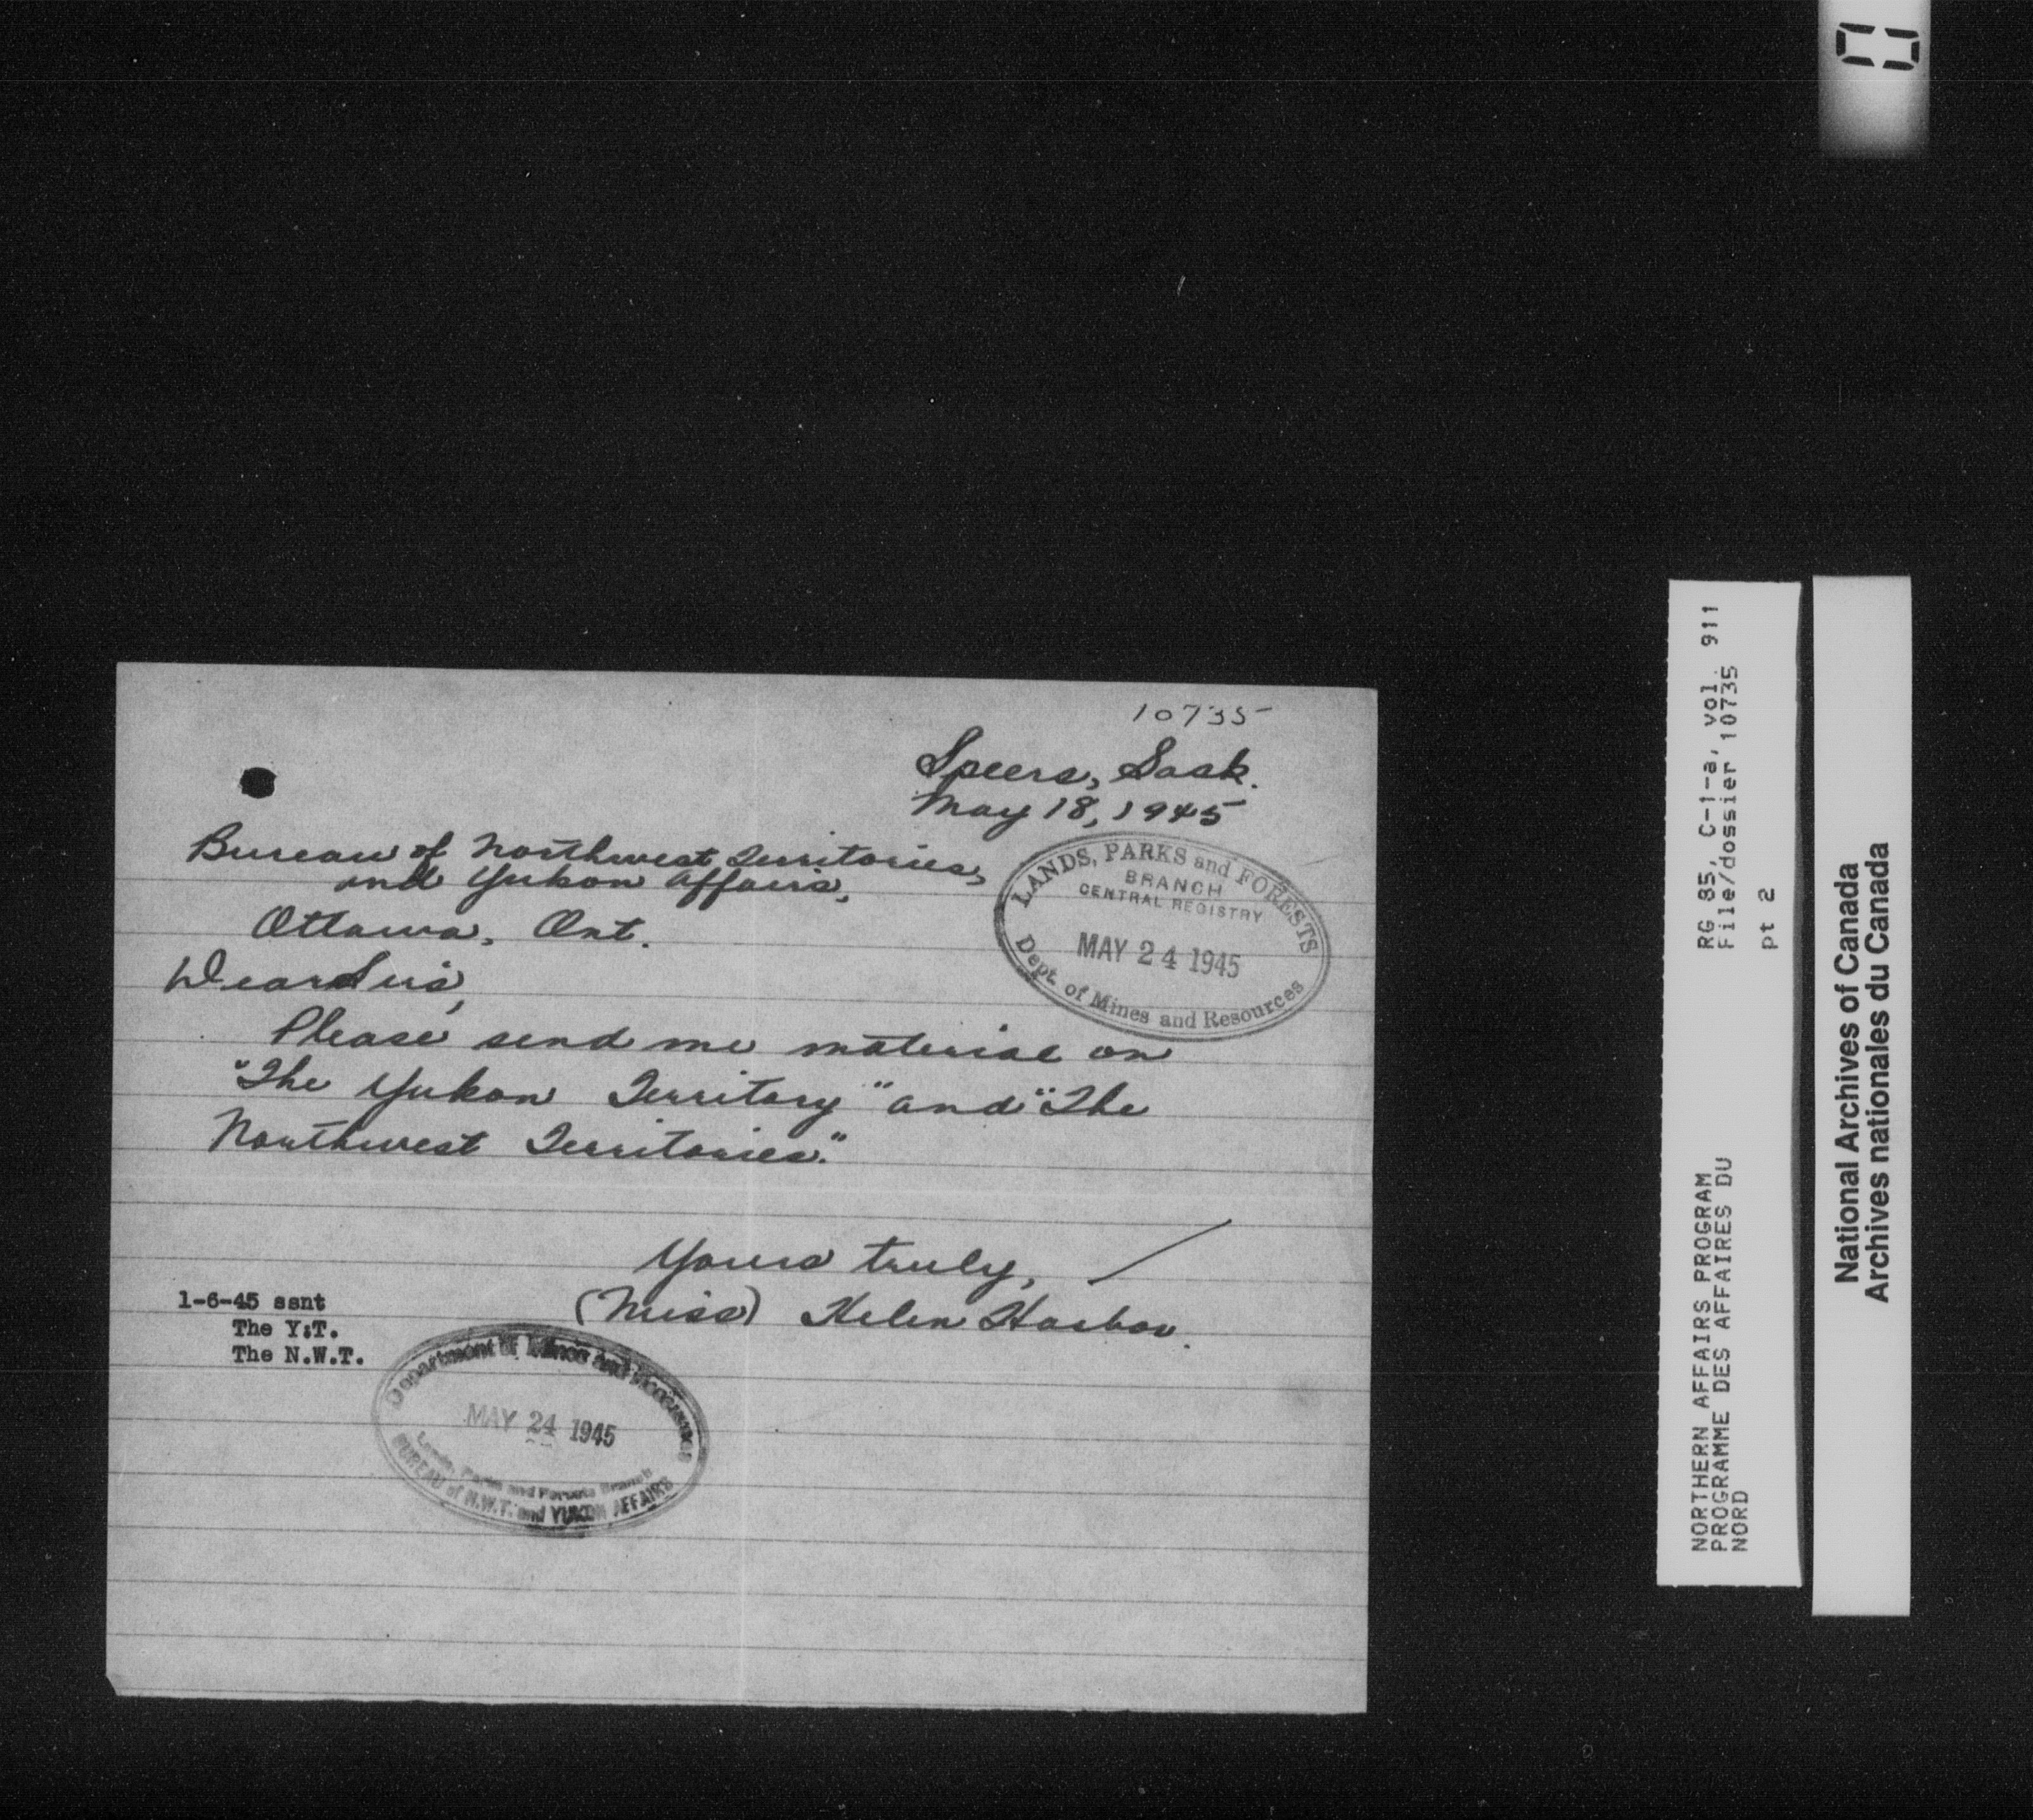 10735
Speers, Sask.
May 18, 1945
Bureau of Northwest Territories,
and Yukon Affairs,
Ottawa, Ont.
LANDS, PARKS and FORESTS
BRANCH
CENTRAL REGISTRY
MAY 24 1945
Dept. of Mines and Resources
Dear Sirs,
Please send me material on
"The Yukon Territory" and "The
Northwest Territories."
Yours truly,
(Miss) Helen
1-6-45 ssnt
The Y:T.
The N.W.T.
Department of Mines and Resources
MAY 24 1945
Lands, Parks and Forests Branch
BUREAU of N.W.T. and YUKON AFFAIRS
RG 85, C-1-a, vol. 911
File/dossier 10735
pt 2
NORTHERN AFFAIRS PROGRAM
PROGRAMME DES AFFAIRES DU
NORD
National Archives of Canada
Archives nationales du Canada